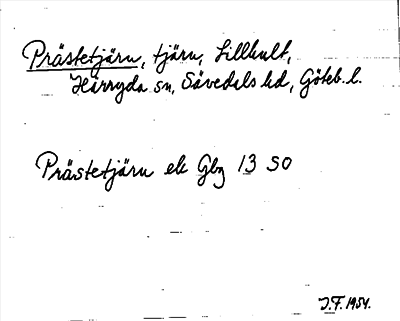 Prästetjärn, tjärn, Lillhult,
Härryda sn, Sävedals hd, Göteb. l.
Prästetjärn ek Gbg 13 SO
J.F. 1954.